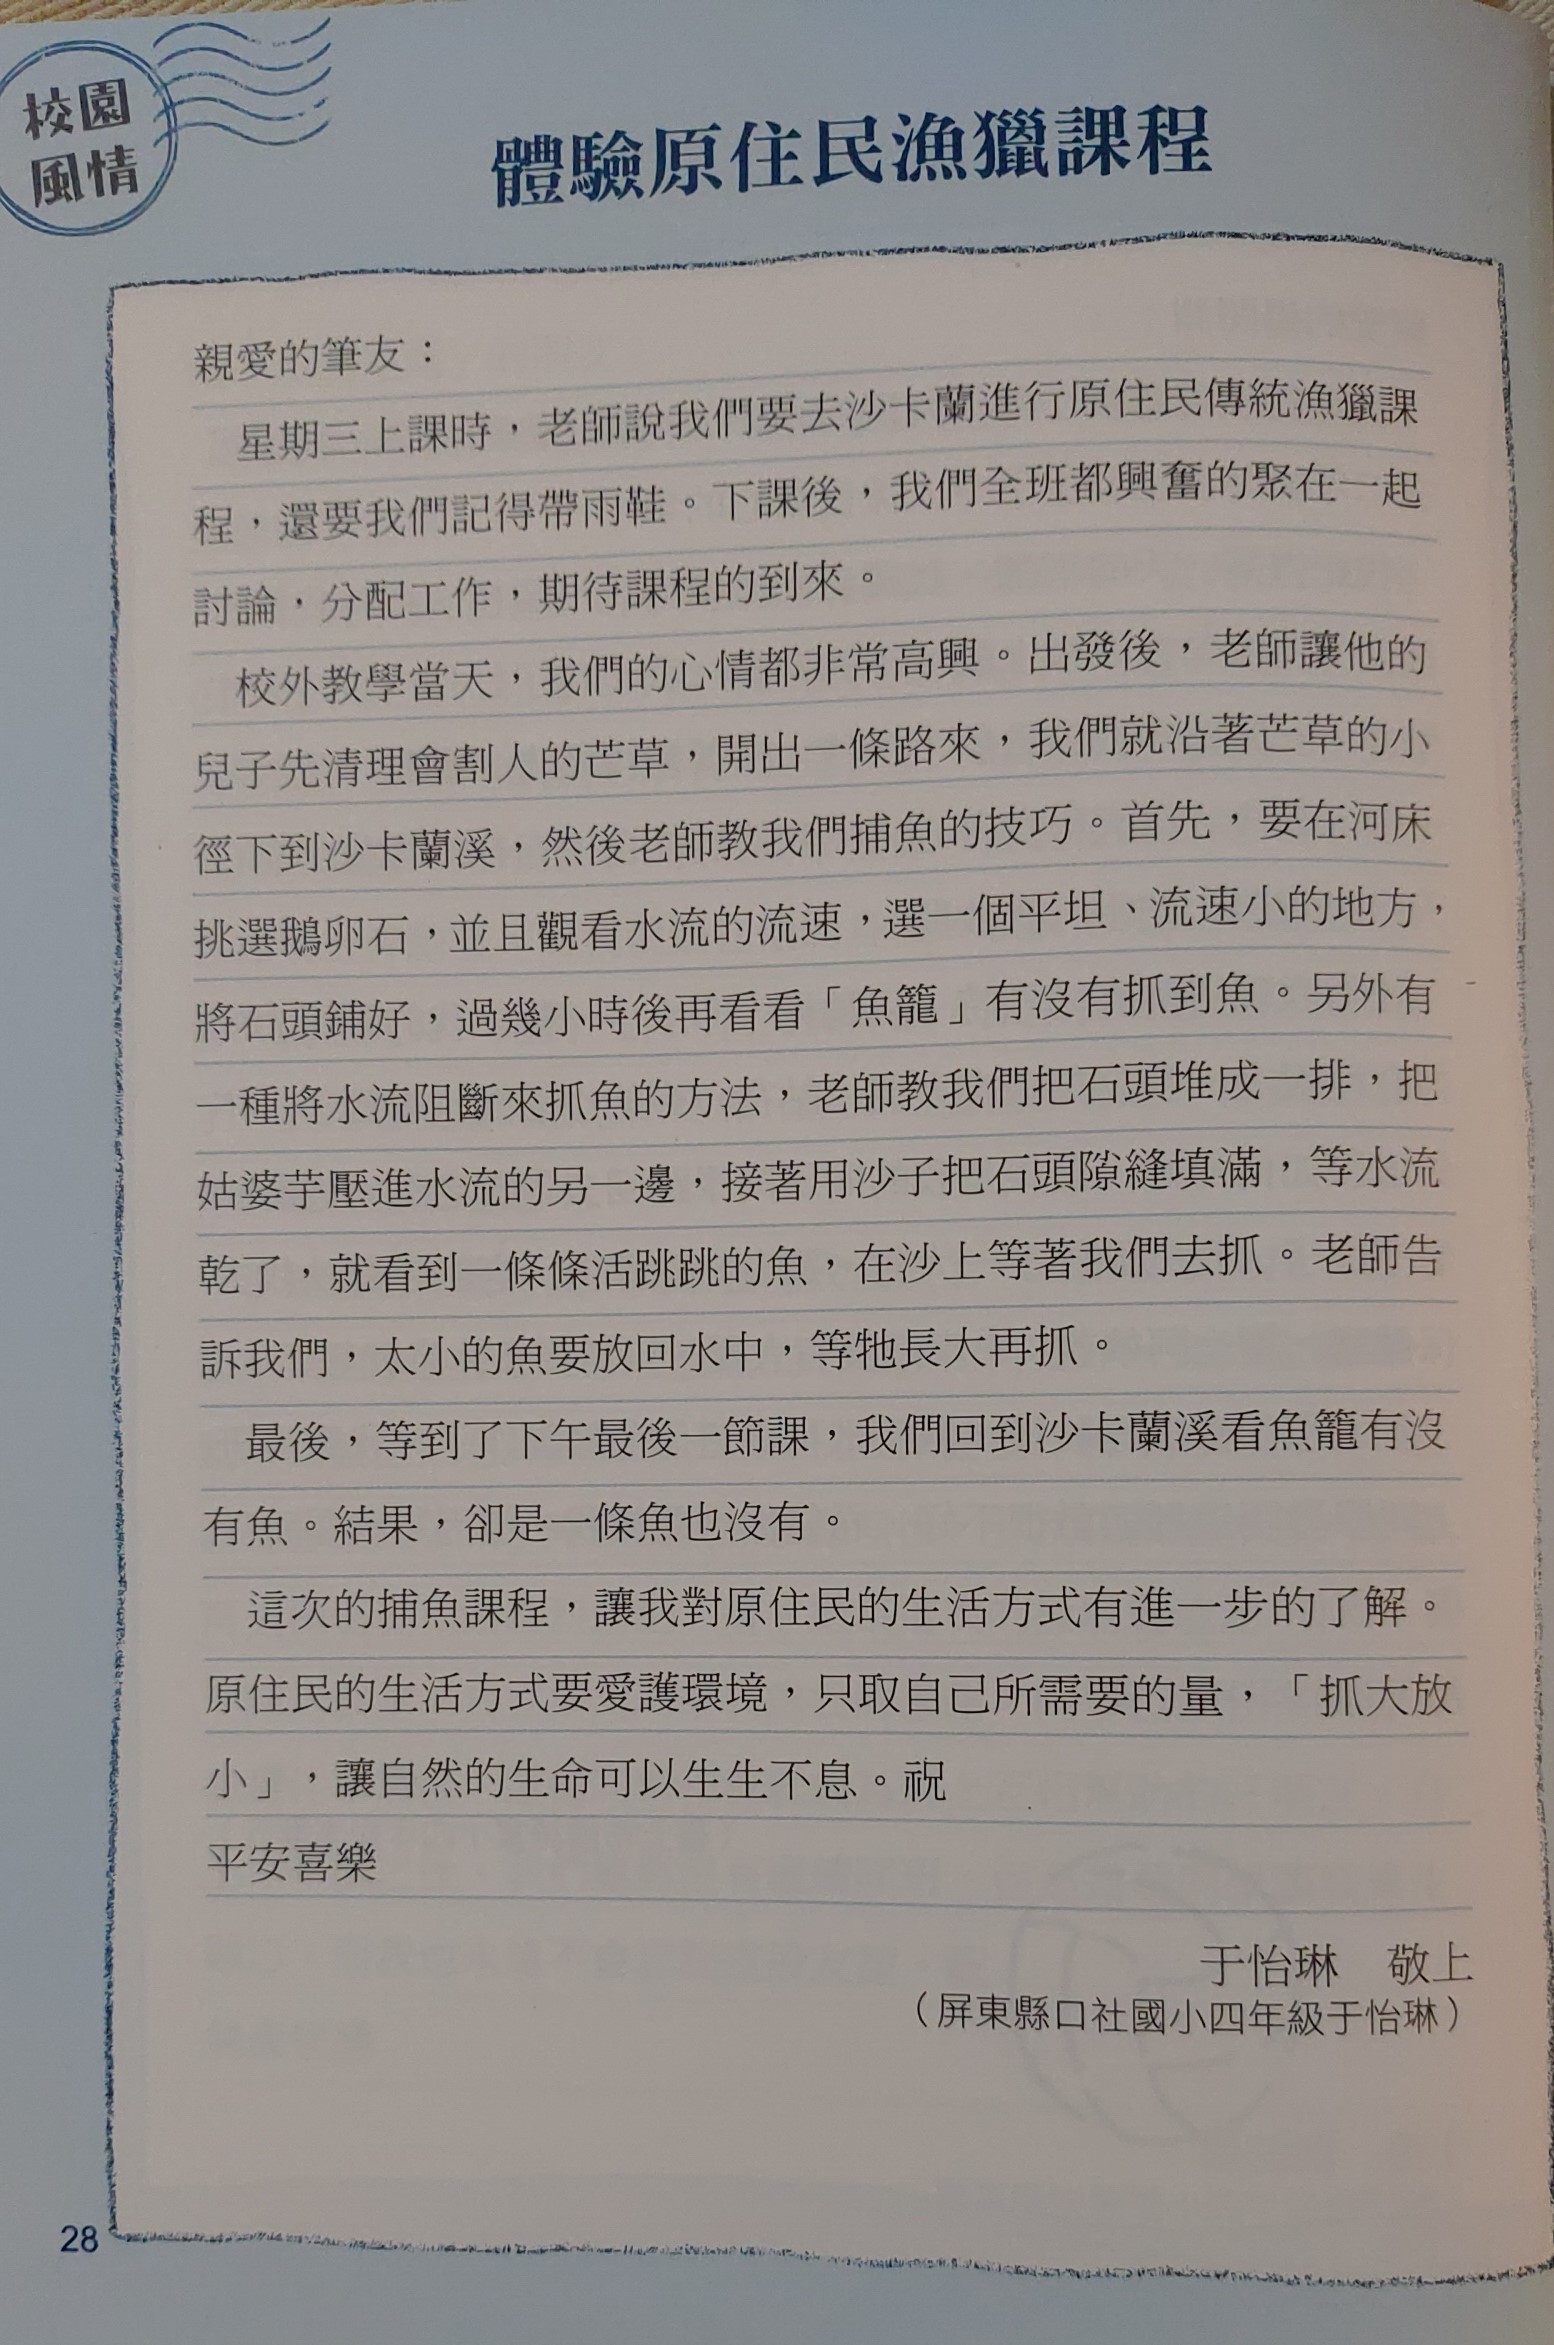 校園
風情
體驗原住民漁獵課程
親愛的筆友：
星期三上課時，老師說我們要去沙卡蘭進行原住民傳統漁獵課
程，還要我們記得帶雨鞋。下課後，我們全班都興奮的聚在一起
討論，分配工作，期待課程的到來。
校外教學當天，我們的心情都非常高興。出發後，老師讓他的
兒子先清理會割人的芒草，開出一條路來，我們就沿著芒草的小
徑下到沙卡蘭溪，然後老師教我們捕魚的技巧。首先，要在河床
挑選鵝卵石，並且觀看水流的流速，選一個平坦、流速小的地方，
將石頭鋪好，過幾小時後再看看「魚籠」有沒有抓到魚。另外有
一種將水流阻斷來抓魚的方法，老師教我們把石頭堆成一排，把
姑婆芋壓進水流的另一邊，接著用沙子把石頭隙縫填滿，等水流
乾了，就看到一條條活跳跳的魚，在沙上等著我們去抓。老師告
訴我們，太小的魚要放回水中，等牠長大再抓。
最後，等到了下午最後一節課，我們回到沙卡蘭溪看魚籠有沒
有魚。結果，卻是一條魚也沒有。
這次的捕魚課程，讓我對原住民的生活方式有進一步的了解。
原住民的生活方式要愛護環境，只取自己所需要的量，「抓大放
小」，讓自然的生命可以生生不息。祝
平安喜樂
于怡琳　敬上
（屏東縣口社國小四年級于怡琳）
28